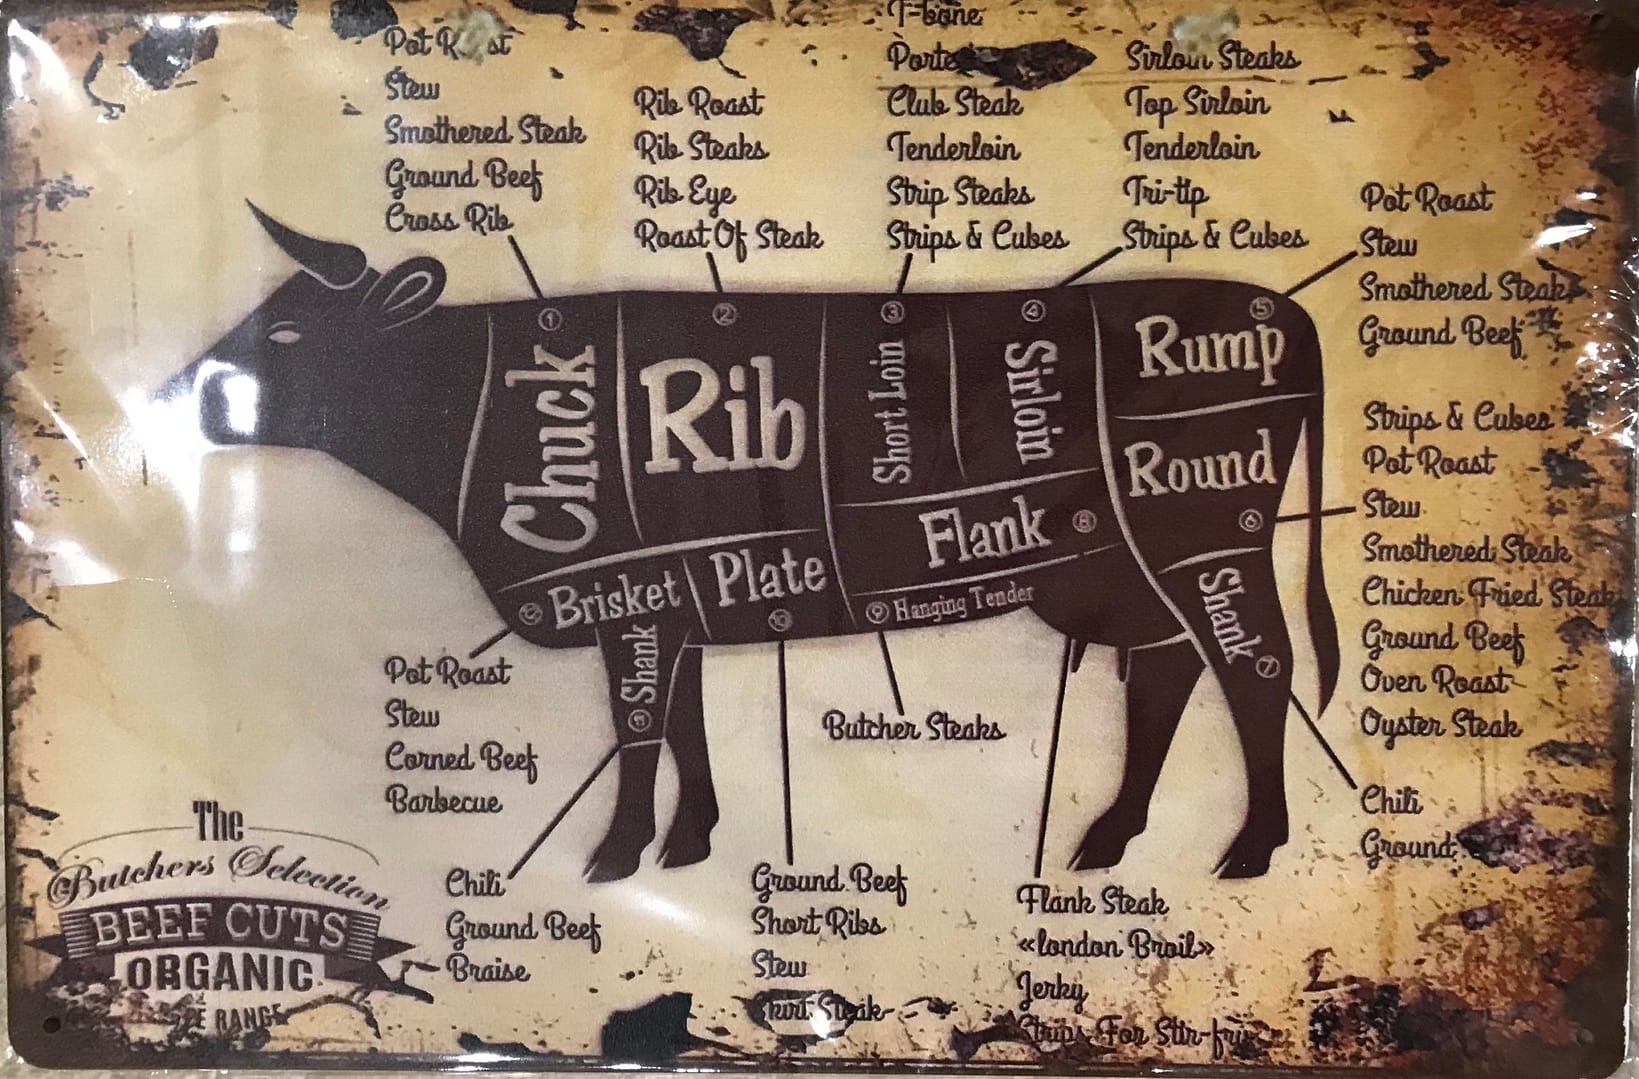 Pot Roast
Stew
Smothered Steak
Ground Beef
Cross Rib
Rib Roast
Rib Steaks
Rib Eye
Roast Of Steak
T-bone
Club Steak
Tenderloin
Strip Steaks
Strips & Cubes
Sirloin Steaks
Top Sirloin
Tenderloin
Tri-tip
Strips & Cubes
Pot Roast
Stew
Smothered Steak
Ground Beef
Strips & Cubes
Pot Roast
Stew
Smothered Steak
Chicken Fried Steak
Ground Beef
Oven Roast
Oyster Steak
Chili
Ground
① Chuck
② Rib
③ Short Loin
④ Sirloin
⑤ Rump
Round ⑥
Flank ⑧
⑨ Hanging Tender
Plate ⑩
Brisket
Shank
Shank ⑦
Pot Roast
Stew
Corned Beef
Barbecue
Butcher Steaks
Chili
Ground Beef
Braise
Ground Beef
Short Ribs
Stew
Skirt Steak
Flank Steak
«london Broil»
Jerky
Strips For Stir-fry
The
Butchers Selection
BEEF CUTS
ORGANIC
RANGE